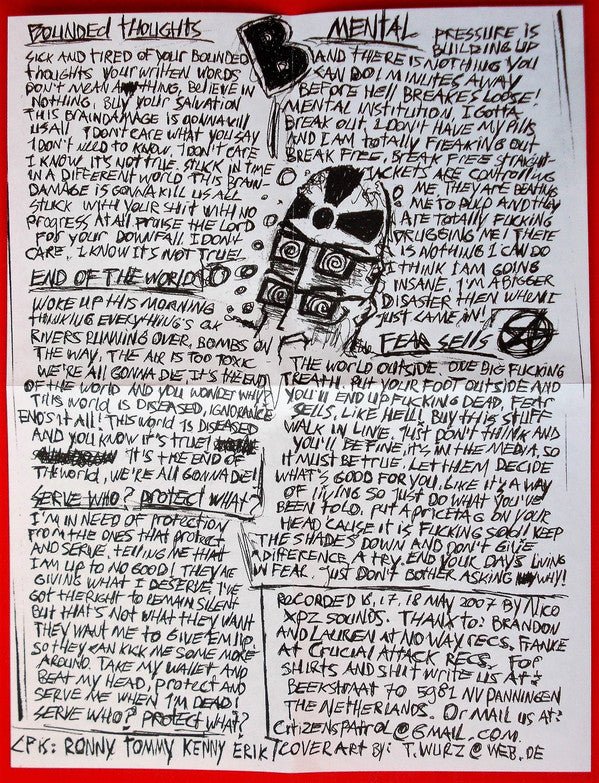 BOUNDED THOUGHTS
SICK AND TIRED OF YOUR BOUNDED
THOUGHTS YOUR WRITTEN WORDS
DON'T MEAN A THING, BELIEVE IN
NOTHING, BUY YOUR SALVATION
THIS BRAINDAMAGE IS GONNA KILL
US ALL. I DON'T CARE WHAT YOU SAY
I DON'T NEED TO KNOW, I DON'T CARE
I KNOW, IT'S NOT TRUE. STUCK IN TIME
IN A DIFFERENT WORLD THIS BRAIN-
DAMAGE IS GONNA KILL US ALL
STUCK WITH YOUR SHIT WITH NO
PROGRESS AT ALL PRAISE THE LORD
FOR YOUR DOWNFALL I DON'T
CARE, I KNOW IT'S NOT TRUE!
END OF THE WORLD
WOKE UP THIS MORNING
THINKING EVERYTHING'S OK
RIVERS RUNNING OVER, BOMBS ON
THE WAY, THE AIR IS TOO TOXIC
WE'RE ALL GONNA DIE, IT'S THE END
OF THE WORLD AND YOU WONDER WHY
THIS WORLD IS DISEASED, IGNORANCE
ENDS IT ALL! THIS WORLD IS DISEASED
AND YOU KNOW IT'S TRUE!
IT'S THE END OF
THE WORLD, WE'RE ALL GONNA DIE!
SERVE WHO? PROTECT WHAT?
I'M IN NEED OF PROTECTION
FROM THE ONES THAT PROTECT
AND SERVE, TELLING ME THAT
I AM UP TO NO GOOD! THEY'RE
GIVING WHAT I DESERVE, I'VE
GOT THE RIGHT TO REMAIN SILENT
BUT THAT'S NOT WHAT THEY WANT
THEY WANT ME TO GIVE 'EM LIP
SO THEY CAN KICK ME SOME MORE
AROUND. TAKE MY WALLET AND
BEAT MY HEAD, PROTECT AND
SERVE ME WHEN I'M DEAD!
SERVE WHO? PROTECT WHAT?
CPK: RONNY TOMMY KENNY ERIK
B
MENTAL
PRESSURE IS
BUILDING UP
AND THERE IS NOTHING YOU
CAN DO! MINUTES AWAY
BEFORE HELL BREAKES LOOSE!
MENTAL INSTITUTION, I GOTTA
BREAK OUT, I DON'T HAVE MY PILLS
AND I AM TOTALLY FREAKING OUT
BREAK FREE, BREAK FREE STRAIGHT-
JACKETS ARE CONTROLLING
ME, THEY ARE BEATING
ME TO PULP AND THEY
ARE TOTALLY FUCKING
DRUGGING ME! THERE
IS NOTHING I CAN DO
I THINK I AM GOING
INSANE, I'M A BIGGER
DISASTER THEN WHEN I
JUST CAME IN!
FEAR SELLS
THE WORLD OUTSIDE, ONE BIG FUCKING
TREATH, PUT YOUR FOOT OUTSIDE AND
YOU'LL END UP FUCKING DEAD, FEAR
SELLS, LIKE HELL! BUY THIS STUFF
WALK IN LINE, JUST DON'T THINK AND
YOU'LL BE FINE, IT'S IN THE MEDIA, SO
IT MUST BE TRUE, LET THEM DECIDE
WHAT'S GOOD FOR YOU, LIKE IT'S A WAY
OF LIVING SO JUST DO WHAT YOU'VE
BEEN TOLD. PUT A PRICETAG ON YOUR
HEAD 'CAUSE IT IS FUCKING SOLD! KEEP
THE SHADES DOWN AND DON'T GIVE
A DIFFERENCE A TRY, END YOUR DAYS LIVING
IN FEAR, JUST DON'T BOTHER ASKING WHY!
RECORDED 16, 17, 18 MAY 2007 BY NICO
XPZ SOUNDS. THANX TO: BRANDON
AND LAUREN AT NO WAY RECS. FRANKE
AT CRUCIAL ATTACK RECS. FOR
SHIRTS AND SHIT WRITE US AT:
BEEKSTRAAT 70 5981 NV PANNINGEN
THE NETHERLANDS. OR MAIL US AT:
CITIZENSPATROL@GMAIL.COM
COVER ART BY: T.WURZ@WEB.DE